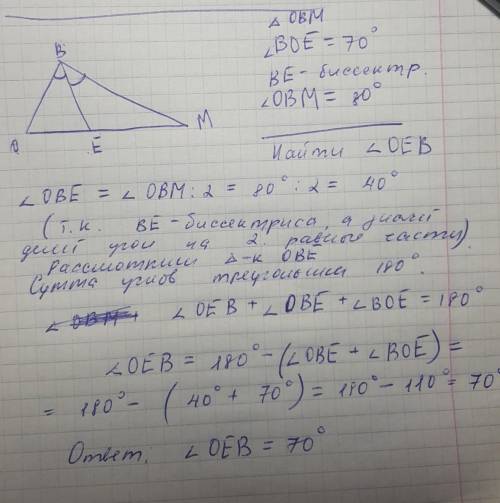 △ OBM
∠BOE = 70°
BE - биссектр.
∠OBM = 80°
Найти ∠OEB
B
O
E
M
∠OBE = ∠OBM : 2 = 80° : 2 = 40°
(т.к. BE - биссектриса, а значит
делит угол на 2 равные части)
Рассмотким △-к OBE
Сумма углов треугольника 180°.
∠OBM + ∠OEB + ∠OBE + ∠BOE = 180°
∠OEB = 180° - (∠OBE + ∠BOE) =
= 180° - (40° + 70°) = 180° - 110° = 70°
Ответ. ∠OEB = 70°